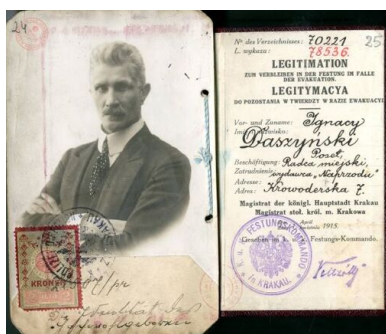 24
KRONEN
Nº des Verzeichnisses: 70221 25
L. wykazu: 78536.
LEGITIMATION
ZUM VERBLEIBEN IN DER FESTUNG IM FALLE
DER EVAKUATION.
LEGITYMACYA
DO POZOSTANIA W TWIERDZY W RAZIE EWAKUACYI
Vor- und Zuname: Ignacy
Daszyński
Beschäftigung: Poseł,
Zatrudnienie: Radca miejski,
wydawca „Naprzodu”
Adresse: Krowoderska 7.
Adres:
Magistrat der königl. Hauptstadt Krakau
Magistrat stoł. król. m. Krakowa
April
1915.
Gesehen im k. Festungs-Kommando.
FESTUNGSKOMMANDO
IN KRAKAU